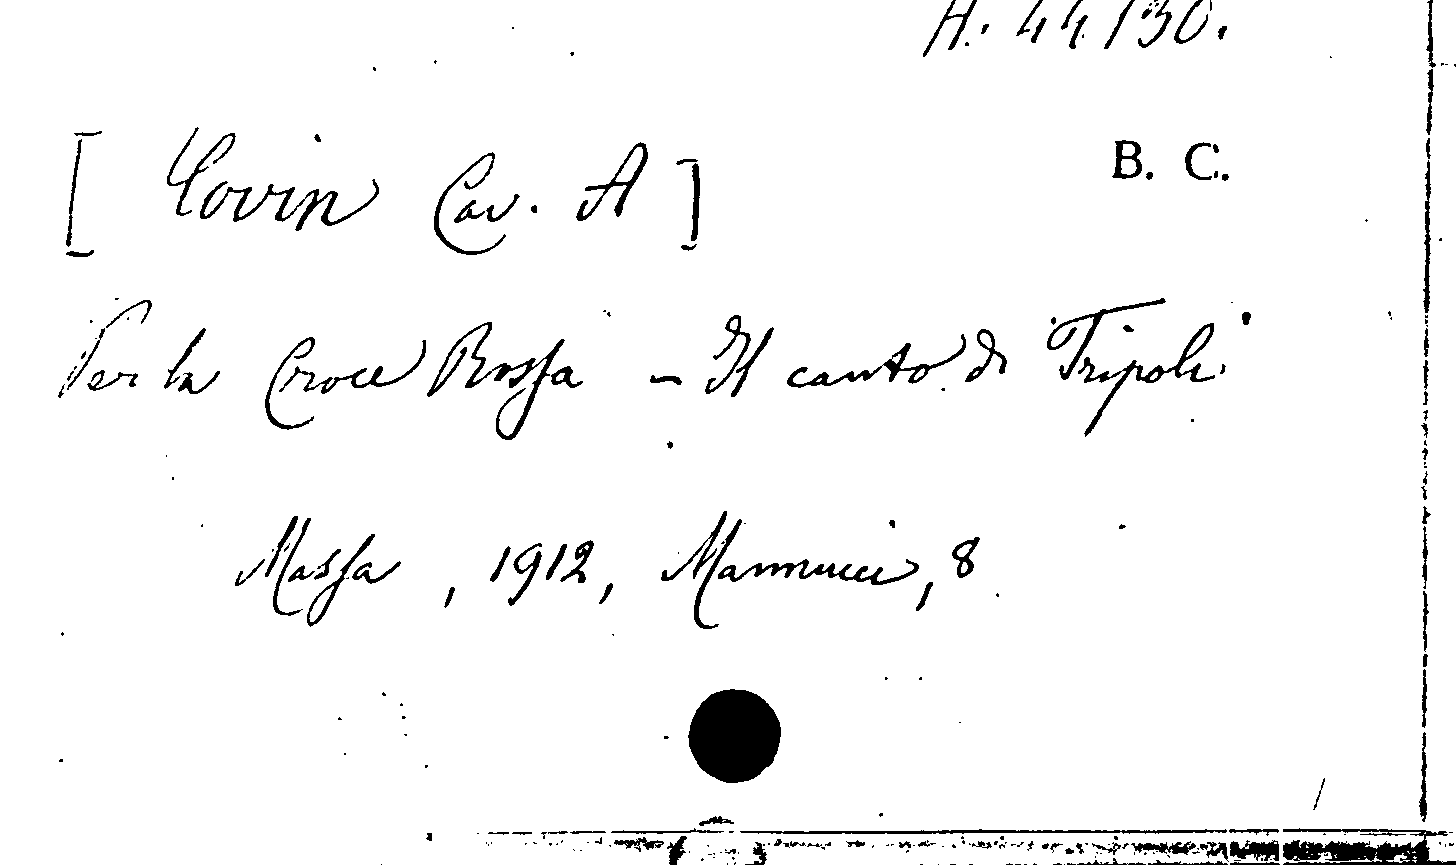 A. 44130.
B. C.
[ Covin Cav. A ]
Per la Croce Rossa - Il canto di Tripoli
Massa, 1912, Mannucci, 8